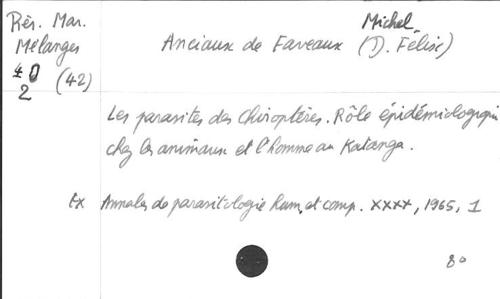 Rés. Mar.
Mélanges
40 (42)
2
Michel
Anciaux de Faveaux (D. Félix)
Les parasites des Chiroptères. Rôle épidémiologique
chez les animaux et l'homme au Katanga.
Ex Annales de parasitologie hum. et comp. XXXX, 1965, 1
80